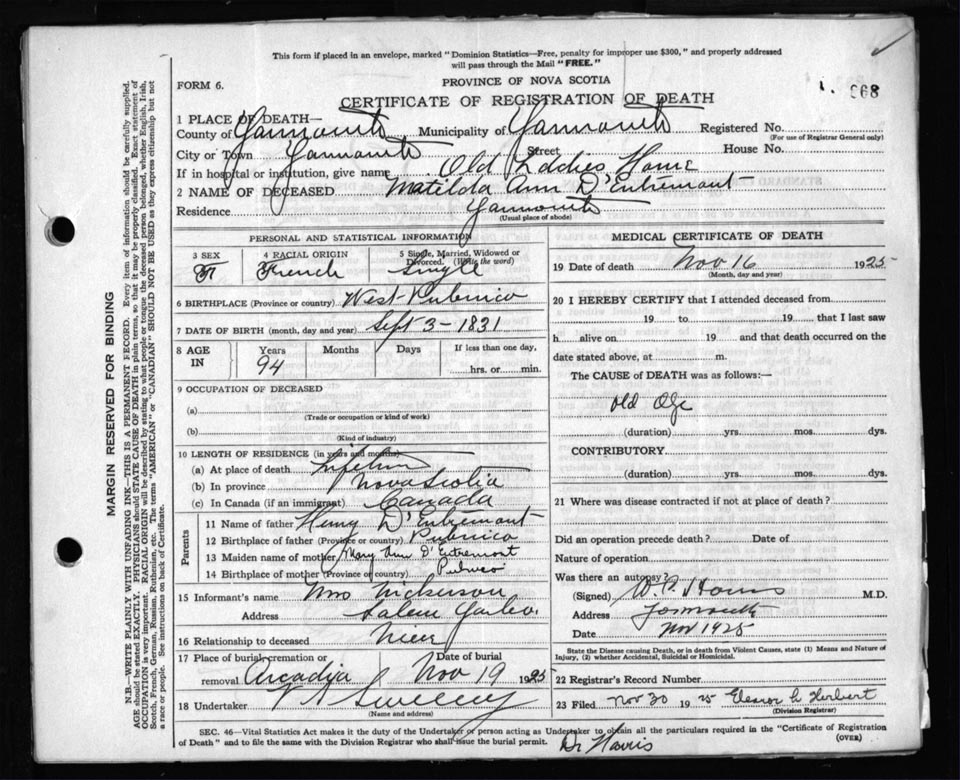 This form if placed in an envelope, marked "Dominion Statistics—Free, penalty for improper use $300," and properly addressed
will pass through the Mail "FREE."
FORM 6.
PROVINCE OF NOVA SCOTIA
CERTIFICATE OF REGISTRATION OF DEATH
968
1 PLACE OF DEATH—
County of Yarmouth Municipality of Yarmouth Registered No.
(For use of Registrar General only)
City or Town Yarmouth Street House No.
If in hospital or institution, give name Old Laddies Home
2 NAME OF DECEASED Matilda Ann D'Entremont
Residence Yarmouth
(Usual place of abode)
PERSONAL AND STATISTICAL INFORMATION
3 SEX 4 RACIAL ORIGIN 5 Single, Married, Widowed or
Divorced. (Write the word)
F French Single
6 BIRTHPLACE (Province or country) West Pubnico
7 DATE OF BIRTH (month, day and year) Sept 3-1831
8 AGE IN Years Months Days If less than one day,
94 hrs. or min.
9 OCCUPATION OF DECEASED
(a)
(Trade or occupation or kind of work)
(b)
(Kind of industry)
10 LENGTH OF RESIDENCE (in years and months)
(a) At place of death Lifetime
(b) In province Nova Scotia
(c) In Canada (if an immigrant) Canada
Parents
11 Name of father Henry D'Entremont
12 Birthplace of father (Province or country) Pubnico
13 Maiden name of mother Mary Ann D'Entremont
14 Birthplace of mother (Province or country) Pubnico
15 Informant's name Mrs Nickerson
Address Salem Yar Co.
16 Relationship to deceased Niece
17 Place of burial, cremation or Date of burial
removal Arcadia Nov 19 1925
18 Undertaker V S Sweeney
(Name and address)
MEDICAL CERTIFICATE OF DEATH
19 Date of death Nov 16 1925
(Month, day and year)
20 I HEREBY CERTIFY that I attended deceased from
19 to 19 that I last saw
h alive on 19 and that death occurred on the
date stated above, at m.
The CAUSE of DEATH was as follows:—
Old Age
(duration) yrs. mos. dys.
CONTRIBUTORY
(duration) yrs. mos. dys.
21 Where was disease contracted if not at place of death?
Did an operation precede death? Date of
Nature of operation
Was there an autopsy?
(Signed) M.D.
Address Yarmouth
Date Nov 1925
State the Disease causing Death, or in death from Violent Causes, state (1) Means and Nature of
Injury, (2) whether Accidental, Suicidal or Homicidal.
22 Registrar's Record Number
23 Filed Nov 30 1925 Eleanor L Herbert
(Division Registrar)
SEC. 46—Vital Statistics Act makes it the duty of the Undertaker or person acting as Undertaker to obtain all the particulars required in the "Certificate of Registration
of Death" and to file the same with the Division Registrar who shall issue the burial permit. (OVER)
Dr Harris
MARGIN RESERVED FOR BINDING
N.B.—WRITE PLAINLY WITH UNFADING INK—THIS IS A PERMANENT RECORD. Every item of information should be carefully supplied.
AGE should be stated EXACTLY. PHYSICIANS should STATE CAUSE OF DEATH in plain terms, so that it may be properly classified. Exact statement of
OCCUPATION is very important. RACIAL ORIGIN will be described by stating to what people or tongue the deceased person belonged, whether English, Irish,
Scotch, French, German, Russian, Ruthenian, etc. The terms "AMERICAN" or "CANADIAN" SHOULD NOT BE USED as they express citizenship but not
a race or people. See instructions on back of Certificate.